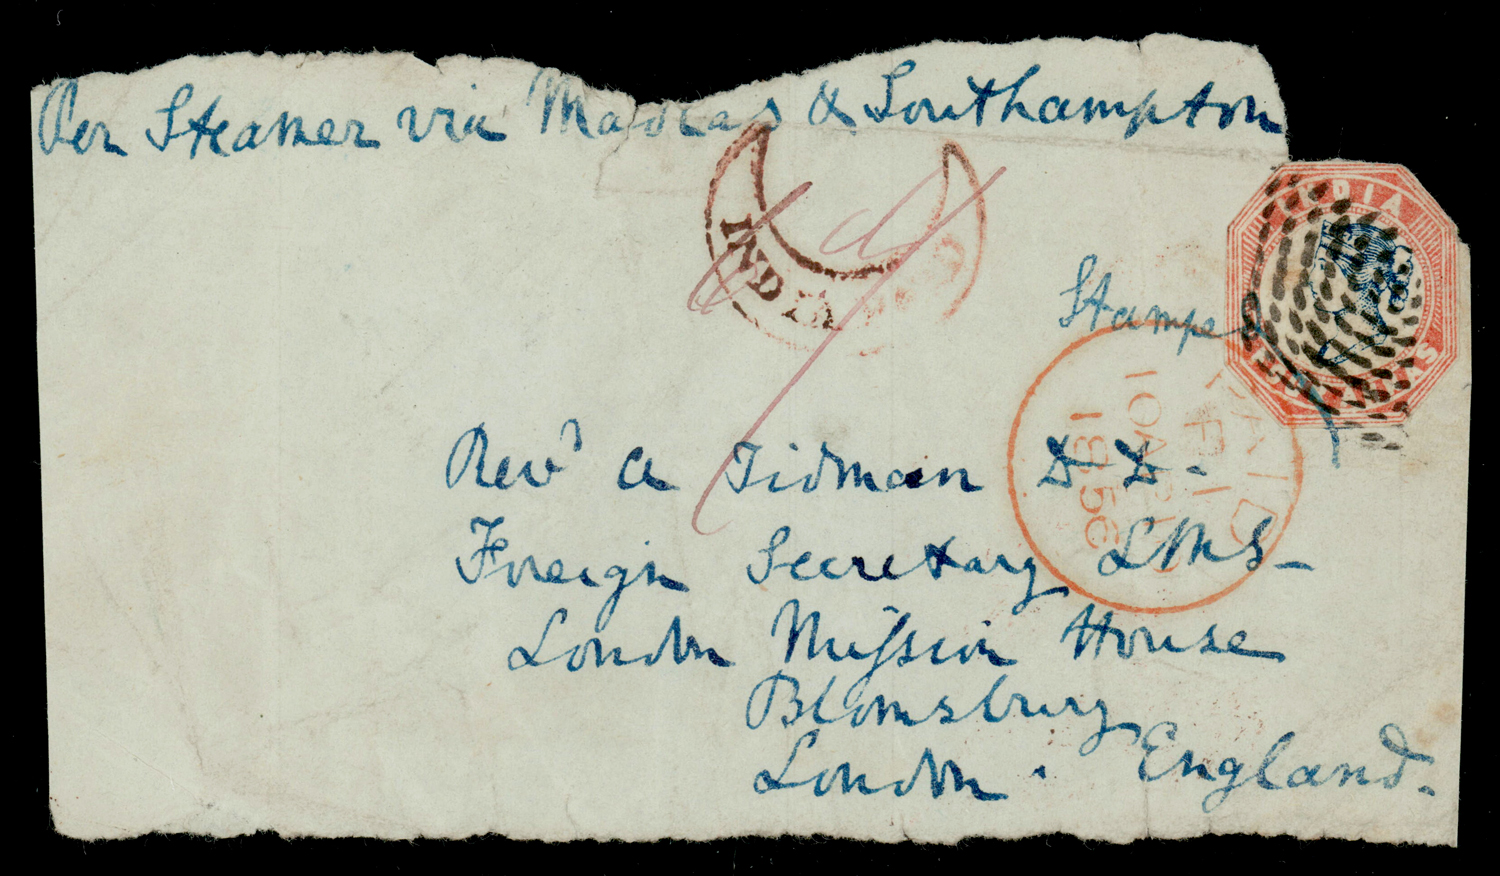 Per Steamer via Madras & Southampton
INDIA
INDIA PAID
Stamped
FOUR ANNAS
PAID
10 AP 10
1856
Revd A Tidman D D -
Foreign Secretary L M S -
London Mission House
Blomsbury
London . England.